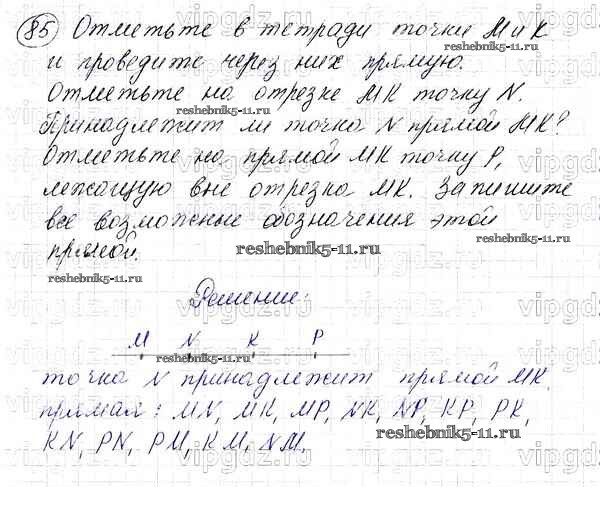 85 Отметьте в тетради точки M и K
и проведите через них прямую.
Отметьте на отрезке MK точку N.
Принадлежит ли точка N прямой MK?
Отметьте на прямой MK точку P,
лежащую вне отрезка MK. Запишите
все возможные обозначения этой
прямой.
Решение:
M N K P
точка N принадлежит прямой MK.
прямая: MN, MK, MP, NK, NP, KP, PK,
KN, PN, PM, KM, NM.
reshebnik5-11.ru
reshebnik5-11.ru
reshebnik5-11.ru
reshebnik5-11.ru
reshebnik5-11.ru
reshebnik5-11.ru
vipgdz.ru